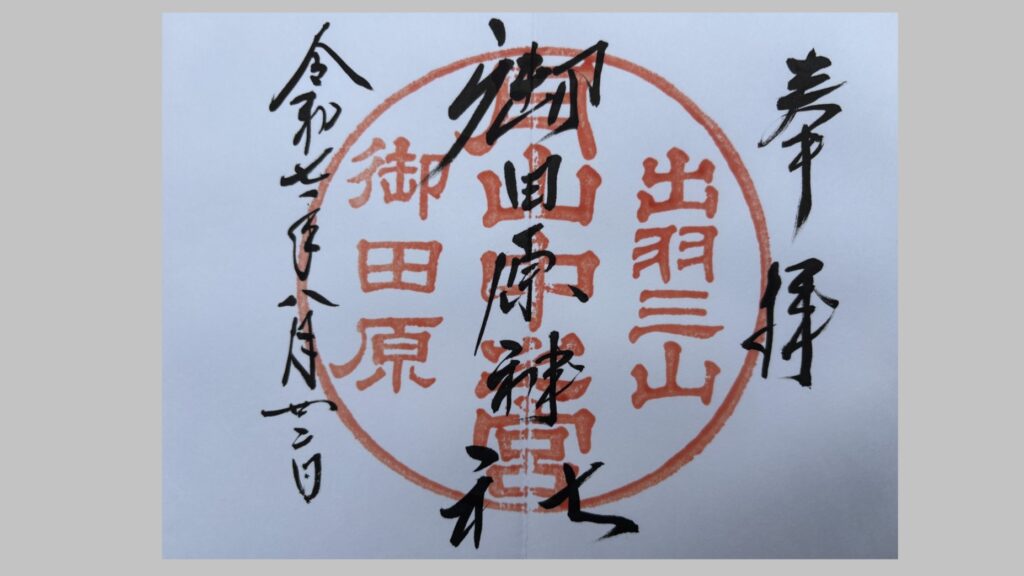 奉拝
出羽三山
月山中之宮
御田原神社
御田原
令和七年八月廿二日